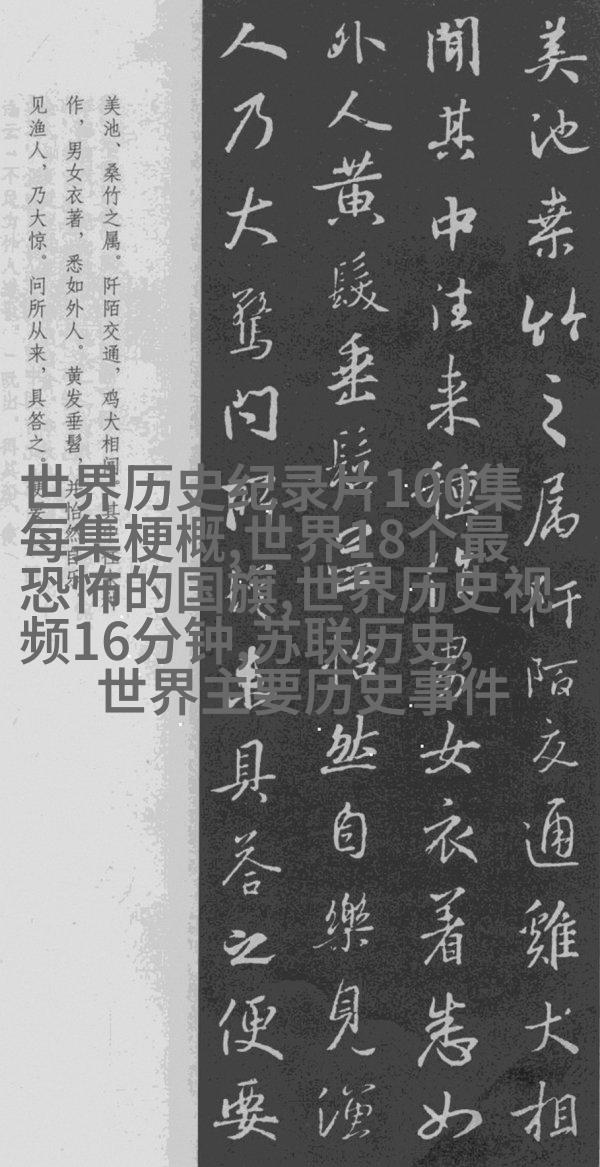 美池桒竹之属阡陌交通雞犬相
聞其中往来種作男女衣着悉如
外人黄髮垂髫並怡然自樂見漁
人乃大驚問所從来具答之便要
美池、桑竹之属。阡陌交通，鸡犬相闻。其
作，男女衣著，悉如外人。黄发垂髫，并怡然自乐
见渔人，乃大惊。问所从来，具答之。便要
世界历史纪录片100集
每集梗概,世界18个最
恐怖的国旗,世界历史视
频16分钟,苏联历史,
世界主要历史事件